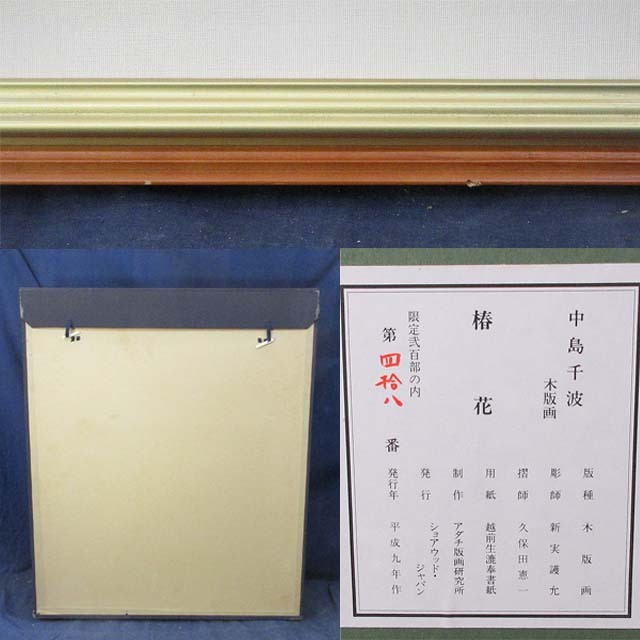 中島千波
木版画
椿花
限定弐百部の内
第四拾八番
版種 木版画
彫師 新実護允
摺師 久保田憲一
用紙 越前生漉奉書紙
制作 アダチ版画研究所
発行 ショアウッド・ジャパン
発行年 平成九年作